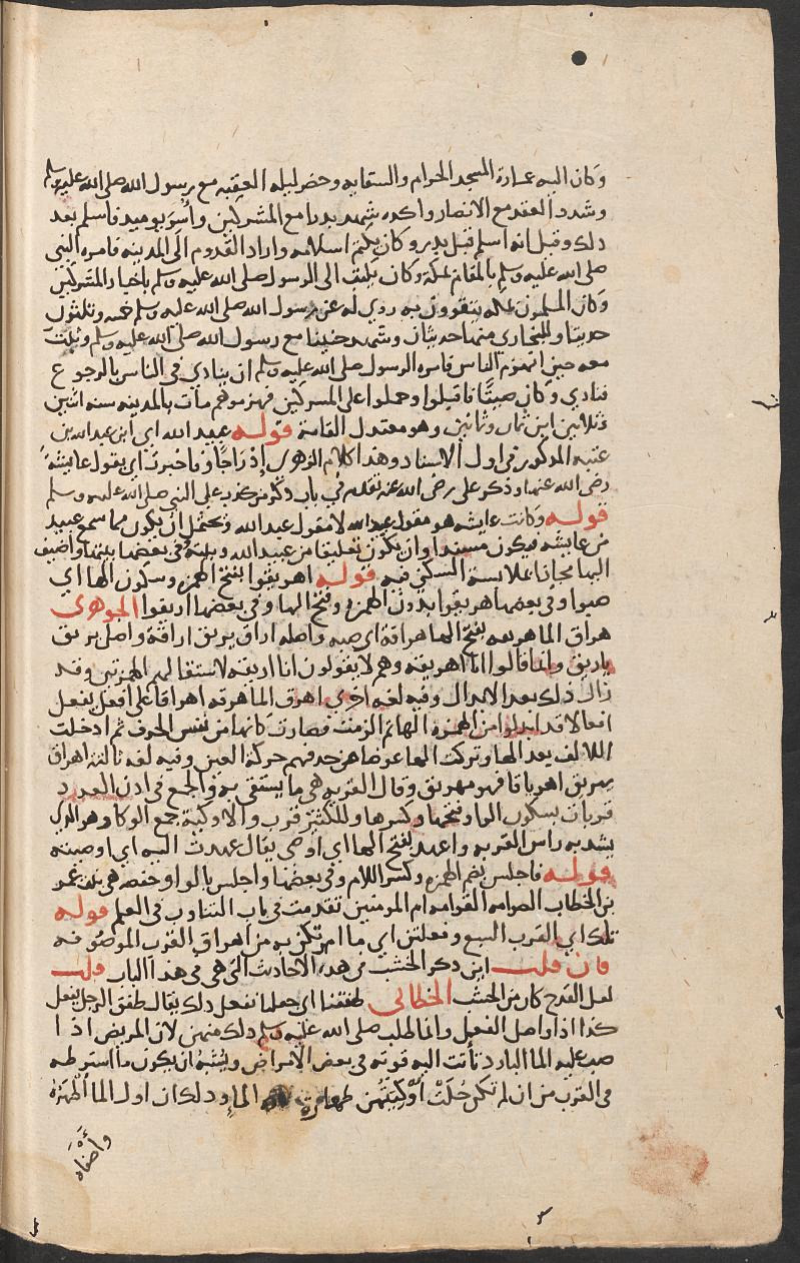 وكان اليه عمارة المسجد الحرام والسقايه وحضر ليله العقبه مع رسول الله صلى الله عليه وسلم
وشدد العقد مع الانصار واكره شهد بدرا مع المشركين وأُسر يوميد فاسلم بعد
ذلك وقيل انه اسلم قبل بدر وكان يكتم اسلامه واراد القدوم الى المدينه فامره النبي
صلى الله عليه وسلم بالمقام بمكة وكان يكتب الى الرسول صلى الله عليه وسلم باخبار المشركين
وكان المسلمون بمكه يتقوون به روي له عن رسول الله صلى الله عليه وسلم خمسه وثلثون
حديثا وللبخاري منها حديثان وشهد حنينا مع رسول الله صلى الله عليه وسلم وثبت
معه حين انهزم الناس فامره الرسول صلى الله عليه وسلم ان ينادي في الناس بالرجوع
فنادي وكان صيتًا فاقبلوا وحملوا على المسركين فهزموهم مات بالمدينه سنه اثنين
وثلاثين ابن ثمان وثمانين وهو معتدل القامة قوله عبيد الله اي ابن عبد الله بن
عتبه المذكور في اول الاسناد وهذا كلام الزهري إدراجًا و فاخبرت اي بقول عايشه
رضى الله عنها وذكر على رضى الله عنه تقدم في باب
قوله وكانت عايشه هو مقول عبيد الله لا مقول عبد الله ويحتمل ان يكون مما سمع عبيد
من عايشه فيكون مسندا وان يكون تعليقا من عبيد الله و بيته وفي بعضها بيتها واضيف
اليها مجازا لملابسة السكني فيه قوله اهريقوا بفتح الهمزه وسكون الها اي
صبوا وفي بعضها هريقوا بدون الهمزه وفتح الها وفي بعضها اريقوا الجوهرى
هراق الما هريقه بفتح الها هراقة اي صبه واصله اراق يريق اراقة واصل يريق
ياريق وانما قالوا انا اهريقه وهم لا يقولون انا اريقه لاستقالهم الهمزتين وقد
زال ذلك بعد الابدال وفيه لغه اخري اهرق الما يهرقه اهراقا على افعل يفعل
افعالا قد ابدلوا من الهمزه الها ثم الزمت فصارت كانها من نفس الحرف ثم ادخلت
الالف بعد الها وتركت الها عوضا من حذفهم حركة العين وفيه لغه ثالثه اهراق
يهريق اهرياقا فهو مهريق وقال القربه هي ما يستقى به والجمع في ادني العدد
قربات بسكون الرا وفتحها وكسرها وللكثير قرب و الاوكية جمع الوكا وهو الذي
يشد به راس القربه و اعهد بفتح الها اي اوصي يقال عهدت اليه اي اوصيته
قوله فاجلس بضم الهمزه وكسر اللام وفي بعضها واجلس بالواو و حفصه هي بنت عمر
بن الخطاب الصوامه القوامه ام المومنين تقدمت في باب التناوب في العلم قوله
تلك اي القرب السبع و فعلتن اي ما امرتكن به من اهراق القرب الموصوفه
فان قلت اين ذكر الخشب في هذه الاحاديث التي هي في هذا الباب قلت
لعل القدح كان من الخشب الخطابي طفقنا اي جعلنا نفعل ذلك يقال طفق الرجل يفعل
كذا اذا واصل الفعل وانما طلب صلى الله عليه وسلم ذلك منهن لان المريض اذا
صب عليه الما البارد ثابت اليه قوته في بعض الامراض ويشبه ان يكون ما اشترطه
في القرب من ان لم تكن حُلَّت أَوْكِيَتُهن طهارة الماء وذلك ان اول الما اطهره
وأصفاه